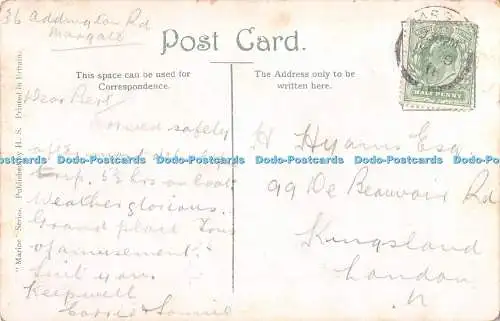 36 Addington Rd
Margate
Post Card.
This space can be used for
Correspondence.
The Address only to be
written here.
HALF PENNY
Dear Bert
safely
after
trip. 5½ hrs on boat
Weather glorious.
Grand place Tons
of amusement.
Suit you.
Keep well
H Hyams Esq.
99 De Beauvoir Rd
Kingsland
London
N
"Marine" Series. Published by H. S. Printed in Britain.
Dodo-Postcards Dodo-Postcards Dodo-Postcards Dodo-Postcards Dodo-Postcards